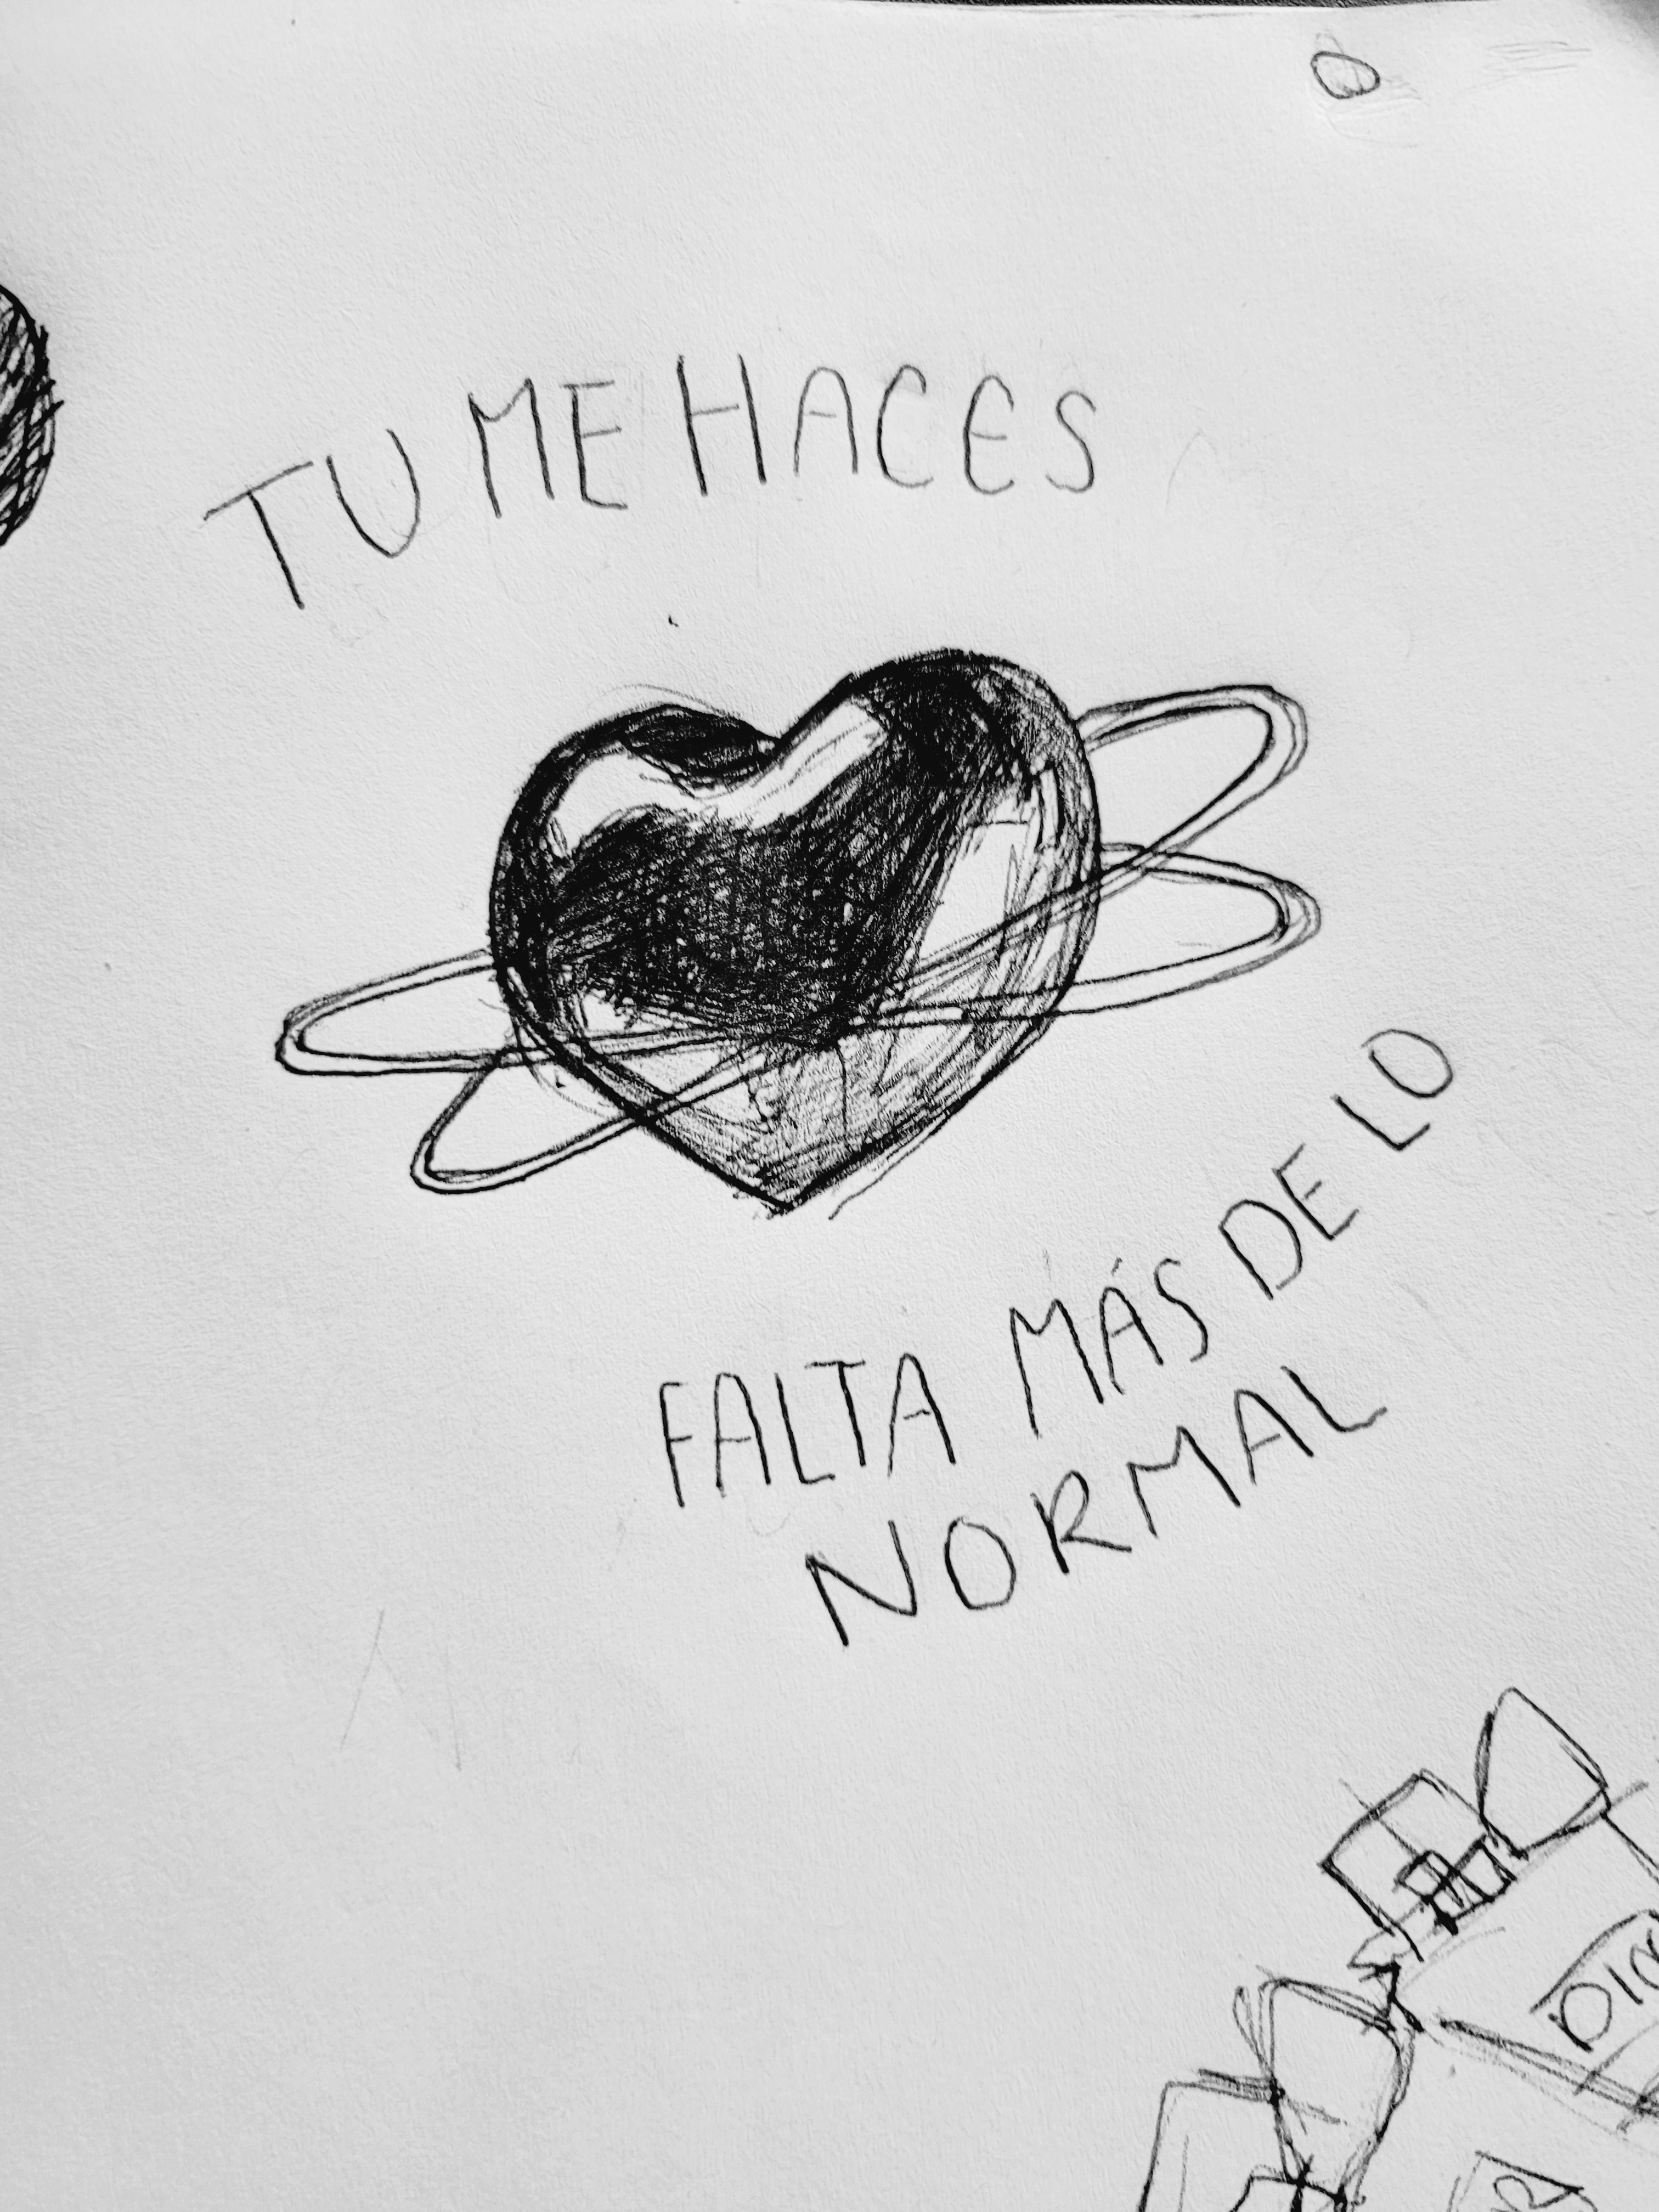 TU ME HACES
FALTA MÁS DE LO
NORMAL